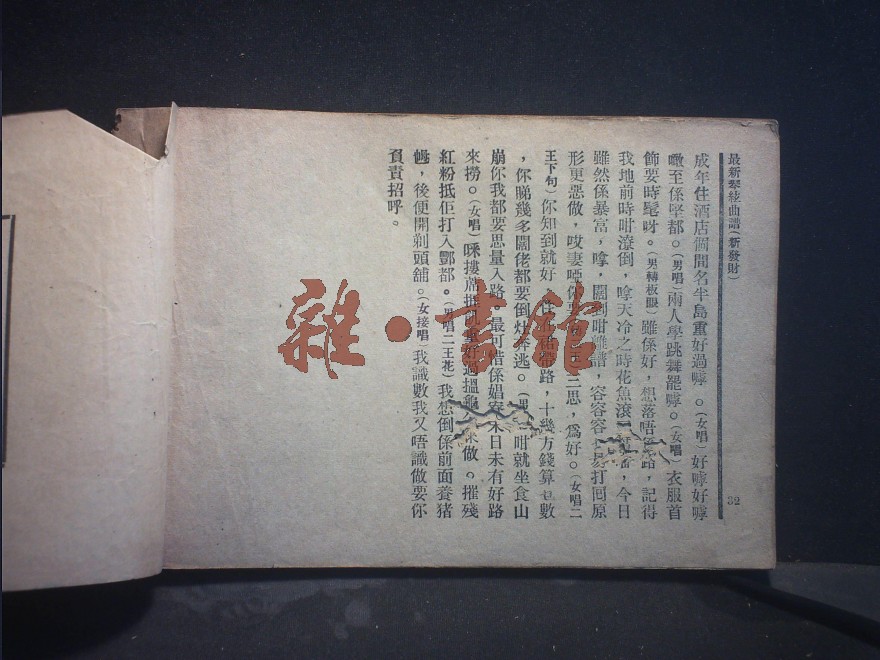 最新琴絃曲譜(新發財)
32
成年住酒店個間名半島重好過嘑。(女唱)好嘑好嘑
噉至係堅都。(男唱)兩人學跳舞罷嘑。(女唱)衣服首
飾要時髦呀。(男轉板眼)雖係好,想落唔路,記得
我地前時咁潦倒,嗱天冷之時花魚滾,今日
雖然係暴富,嗱,鬧到咁離譜,容容容易打囘原
形更惡做,哎妻唖你要三思,爲好。(女唱二
王下句)你知到就好,路,十幾方錢算乜數
,你睇幾多闊佬都要倒灶奔逃。(男咁就坐食山
崩你我都要思量入路。最可惜係娼寮末日未有好路
來撈。(女唱)過搵龜做。摧殘
紅粉抵佢打入酆都。(男唱二王花)我想倒係前面養猪
乸,後便開剃頭舖。(女接唱)我識數我又唔識做要你
負責招呼。
雜·書館